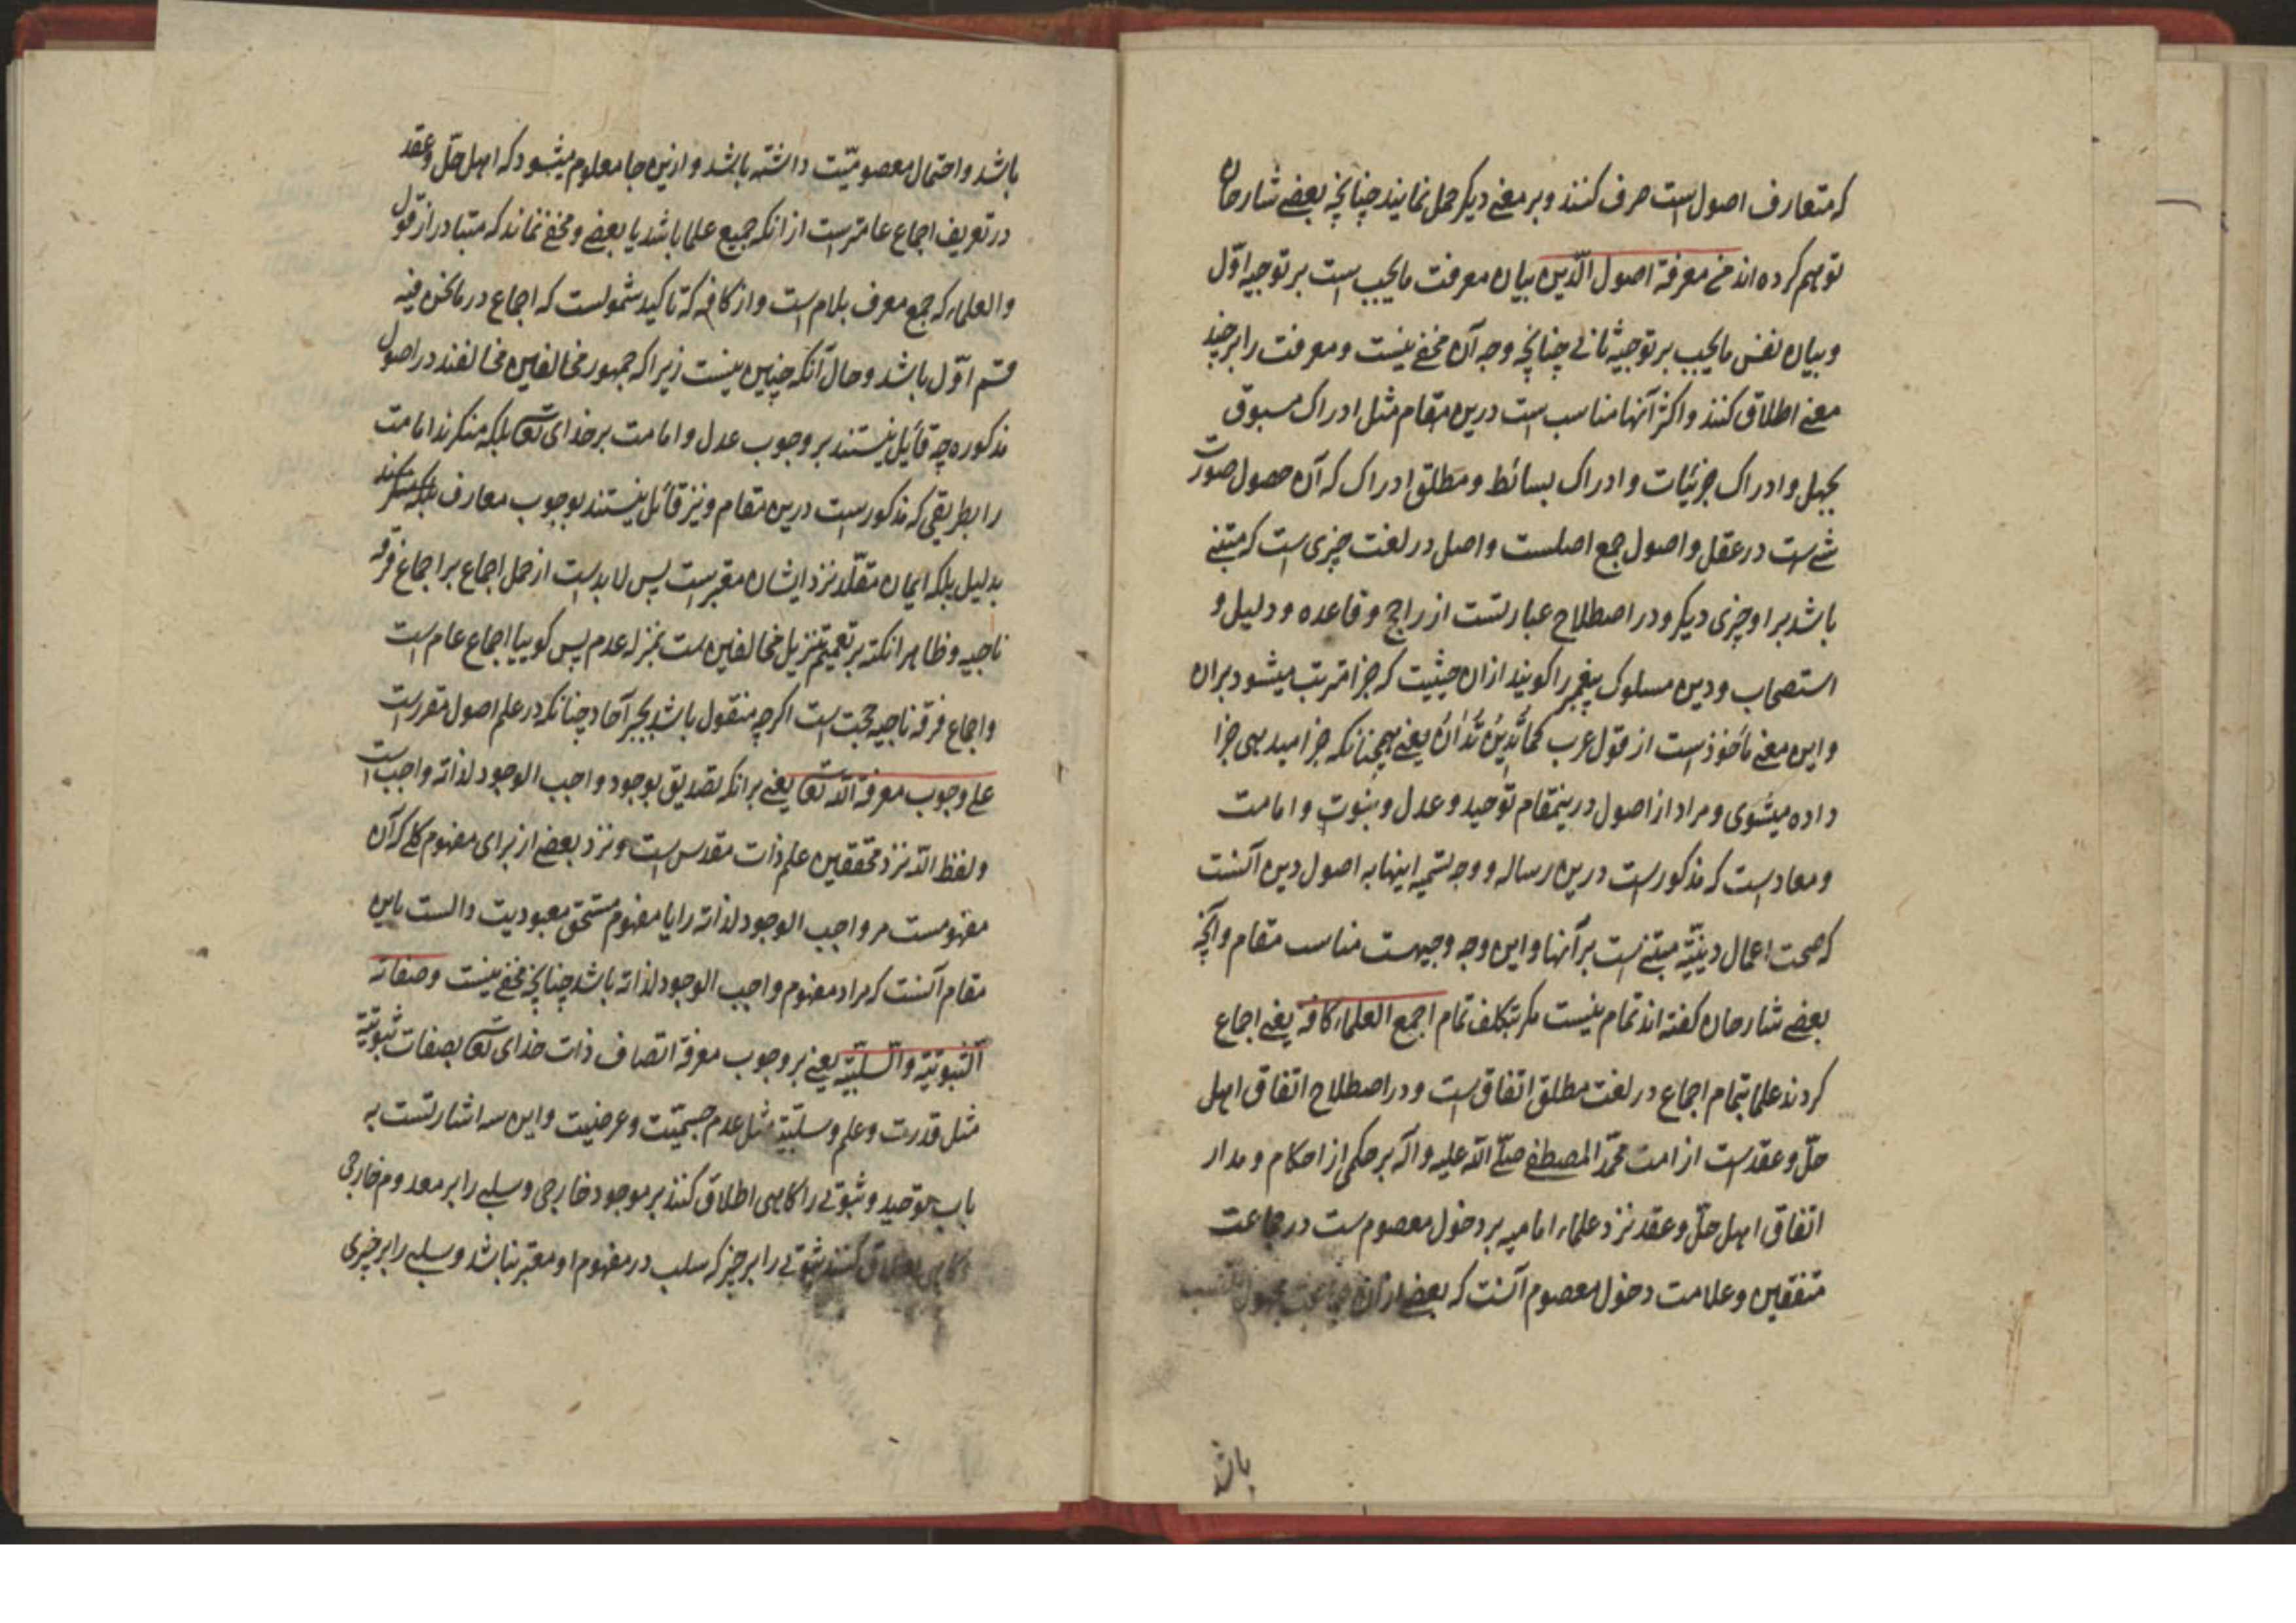 که متعارف اصول است صرف کنند و بر معنی دیکر حمل نمایند چنانچه بعضی شارحان
توهم کرده اند من معرفة اصول الدّین بیان معرفت مایجب است بر توجیه اوّل
و بیان نفس مایجب بر توجیه ثانی چنانچه وجه آن مخفی نیست و معرفت را بر چند
معنی اطلاق کنند و اکثر آنها مناسب است درین مقام مثل ادراک مسبوق
بجهل و ادراک جزئیات و ادراک بسائط و مطلق ادراک که آن حصول صورت
شی است در عقل و اصول جمع اصلست و اصل در لغت چیزی است که مبتنی
باشد بر او چیزی دیکر و در اصطلاح عبارتست از راجح و قاعده و دلیل و
استصحاب و دین مسلوک پیغمبر را کویند ازان حیثیت که جزا مترتب میشود بران
و این معنی مأخوذ است از قول عرب کَمَا تَدِینُ تُدَانُ یعنی همچنانکه جزا میدهی جزا
داده میشوی و مراد از اصول درینمقام توحید و عدل و نبوت و امامت
و معاد است که مذکور است درین رساله و وجه تسمیه اینها به اصول دین آنست
که صحت اعمال دینیّه مبتنی است بر آنها و این وجه وجیهست مناسب مقام و آنچه
بعضی شارحان کفته اند تمام نیست مکر بتکلف تمام اجمع العلماء کافة یعنی اجماع
کردند علما بتمام اجماع در لغت مطلق اتفاق است و در اصطلاح اتفاق اهل
حلّ و عقد است از امت محمّد المصطفی صلّی الله علیه و اله بر حکمی از احکام و مدار
اتفاق اهل حلّ و عقد نزد علماء امامیه بر دخول معصوم ست در جماعت
متفقین و علامت دخول معصوم آنست که بعضی ازان جماعت مجهول النسب
باشد
باشد و احتمال معصومیّت داشته باشد و ازین جا معلوم میشود که اهل حلّ و عقد
در تعریف اجماع عامتر است از انکه جمیع علما باشد یا بعضی و مخفی نماند که متبادر از قول
و العلماء که جمع معرف بلام است و از کافه که تاکید شمولست که اجماع در مانحن فیه
قسم اوّل باشد و حال آنکه چنین نیست زیرا که جمهور مخالفین مخالفند در اصول
مذکوره چه قائیل نیستند بر وجوب عدل و امامت بر خدای تعا بلکه منکرند امامت
را بطریقی که مذکور است درین مقام و نیز قائل نیستند بوجوب معارف بلکه منکرند
بدلیل بلکه ایمان مقلّد نزد ایشان معتبر است پس لا بد است از حمل اجماع بر اجماع فرقه
ناجیه و ظاهرا نکته بر تعمیم تنزیل مخالفین ست بمنزله عدم پس کوییا اجماع عام است
و اجماع فرقه ناجیه حجت است اکرچه منقول باشد بخبر آحاد چنانکه در علم اصول مقرر است
علی وجوب معرفة الله تعا یعنی بر انکه تصدیق بوجود واجب الوجود لذاته واجب است
و لفظ الله نزد محققین علم ذات مقدس است و نزد بعضی از برای مفهوم کلی که آن
مفهومست مر واجب الوجود لذاته را یا مفهوم مستحق معبودیت دالست باین
مقام آنست که مراد مفهوم واجب الوجود لذاته باشد چنانچه مخفی نیست وصفاته
الثبوتیّة والسلبیّة یعنی بر وجوب معرفة اتصاف ذات خدای تعا بصفات ثبوتیّة
مثل قدرت و علم و سلبیّة مثل عدم جسمیّت و عرضیّت و این سه اشارتست به
باب توحید و ثبوتی را کاهی اطلاق کنند بر موجود خارجی و سلبی را بر معدوم خارجی
کاهی اطلاق کنند ثبوتی را بر چیز که سلب در مفهوم او معتبر نباشد و سلبی را بر چیزی